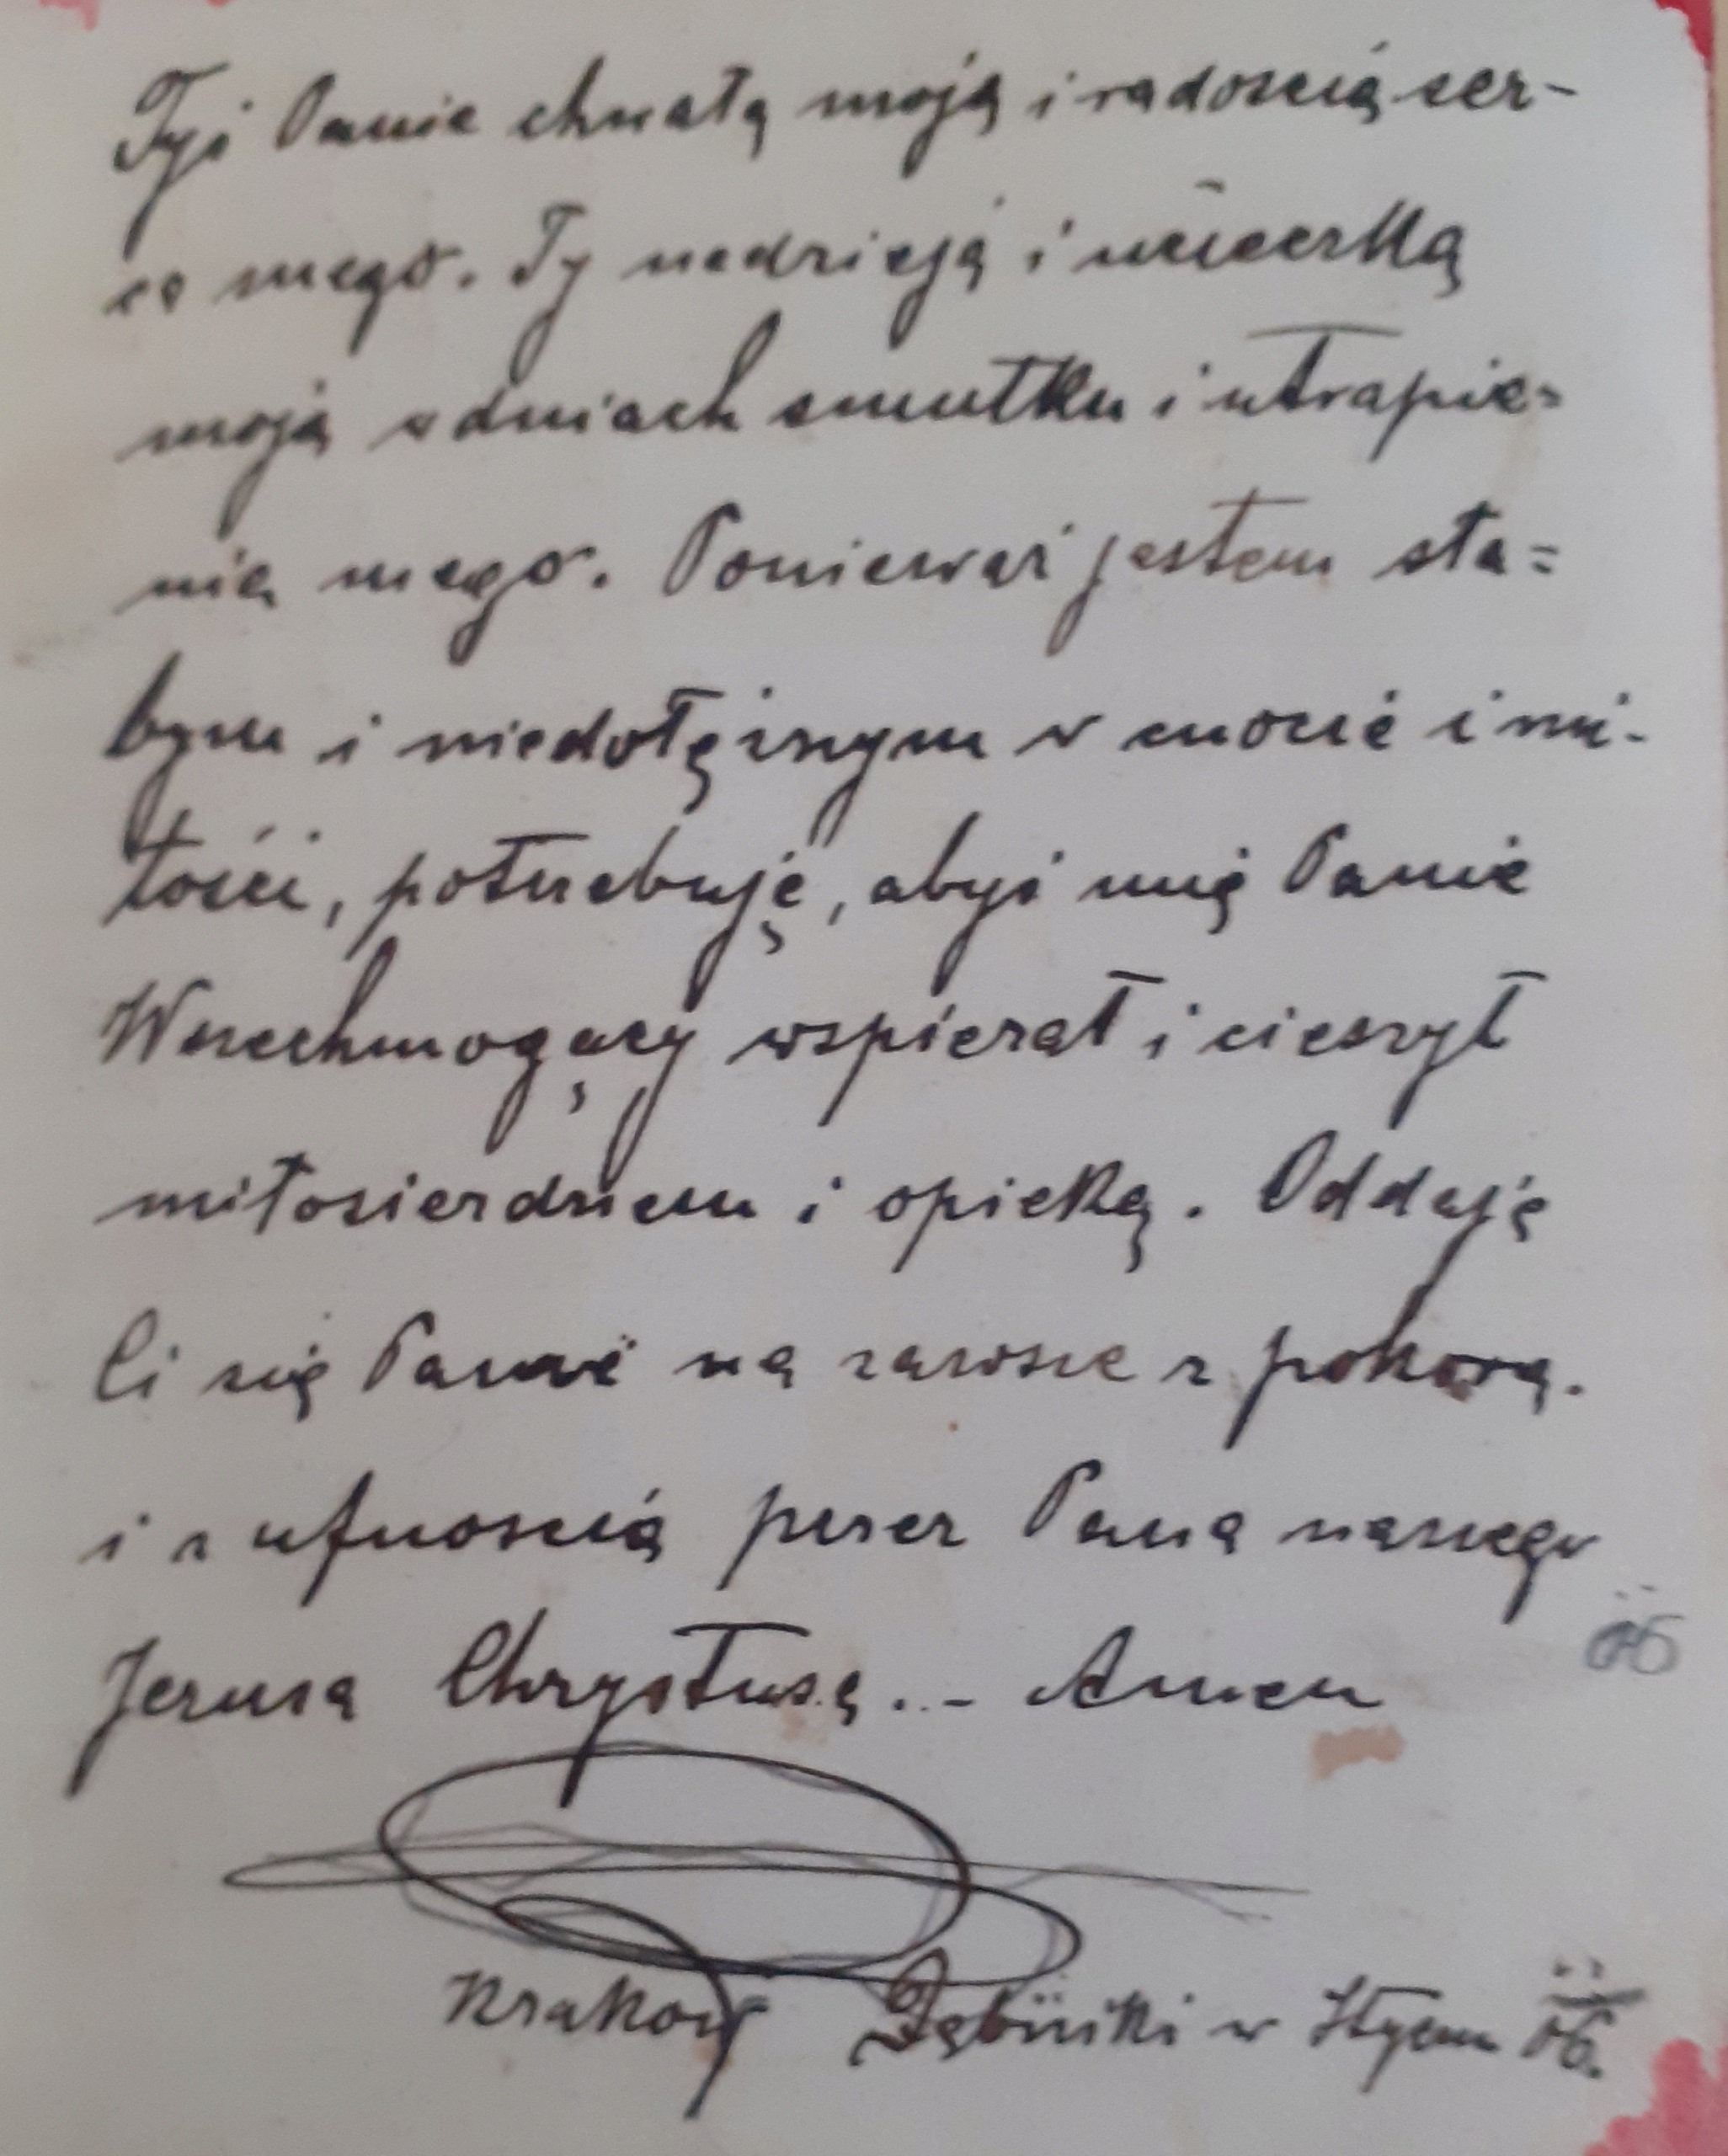 Tyś Panie chwałą moją i radością ser-
ca mego. Ty nadzieją i ucieczką
moją w dniach smutku i utrapie=
nia mego. Ponieważ jestem sła=
bym i niedołężnym w cnocie i mi-
łości, potrzebuję, abyś mię Panie
Wszechmogący wspierał i cieszył
miłosierdziem i opieką. Oddaję
Ci się Panie na zawsze z pokorą.
i z ufnością przez Pana naszego
Jezusa Chrystusa..- Amen
Kraków Dębniki w Stycm 06.